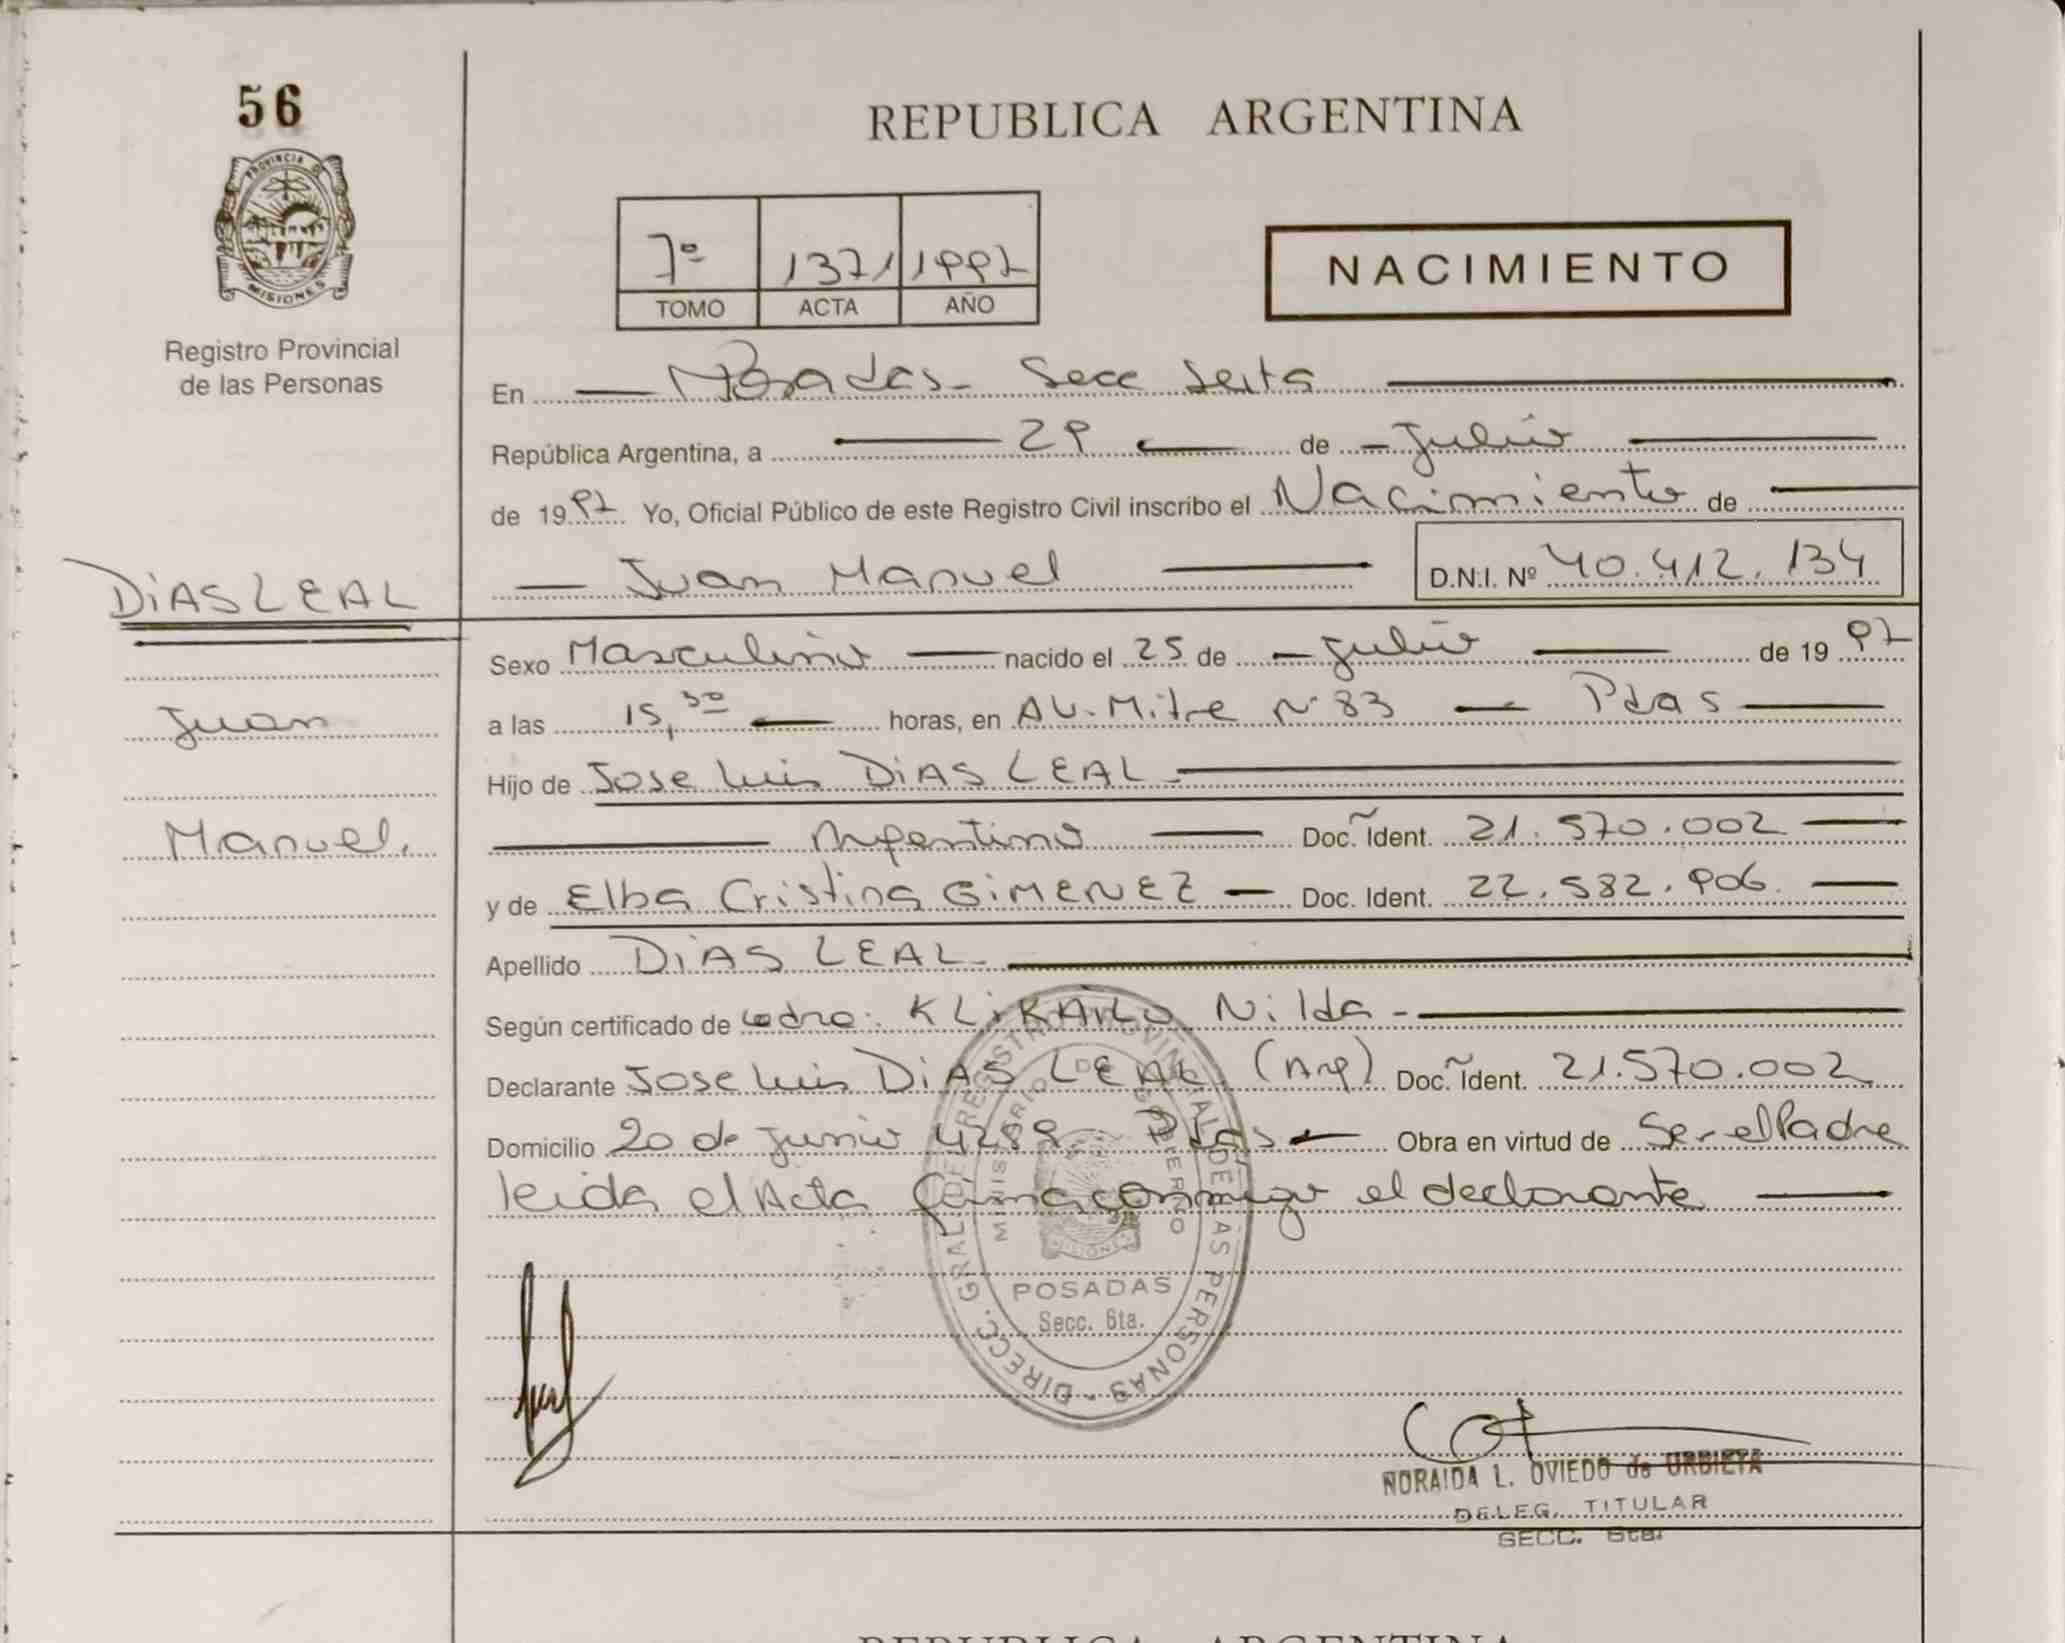 56
PROVINCIA DE
MISIONES
Registro Provincial
de las Personas
DiAS LEAL
Juan
Manuel.
REPUBLICA ARGENTINA
7º 1371 1997
TOMO ACTA AÑO
NACIMIENTO
En Posadas - Secc Sexta
República Argentina, a 29 de Julio
de 1997 Yo, Oficial Público de este Registro Civil inscribo el Nacimiento de
Juan Manuel D.N.I. Nº 40.412.134
Sexo Masculino nacido el 25 de Julio de 1997
a las 15,30 horas, en Av. Mitre Nº 83 Pdas
Hijo de Jose Luis DiAS LEAL
Argentino Doc. Ident. 21.570.002
y de Elba Cristina GiMENEZ Doc. Ident. 22.582.906.
Apellido DiAS LEAL
Según certificado de Nilda
Declarante Jose Luis DiAS LEAL (Arg) Doc. Ident. 21.570.002
Domicilio 20 de Junio Pdas Obra en virtud de Ser el Padre
leida el Acta firma conmigo el declarante
DIRECC. GRAL. DE REGISTRO PROVINCIAL DE LAS PERSONAS
MINISTERIO DE GOBIERNO
MISIONES
POSADAS
Secc. 6ta.
NORAIDA L. OVIEDO de URBIETA
DELEG. TITULAR
SECC. 6ta.
REPUBLICA ARGENTINA